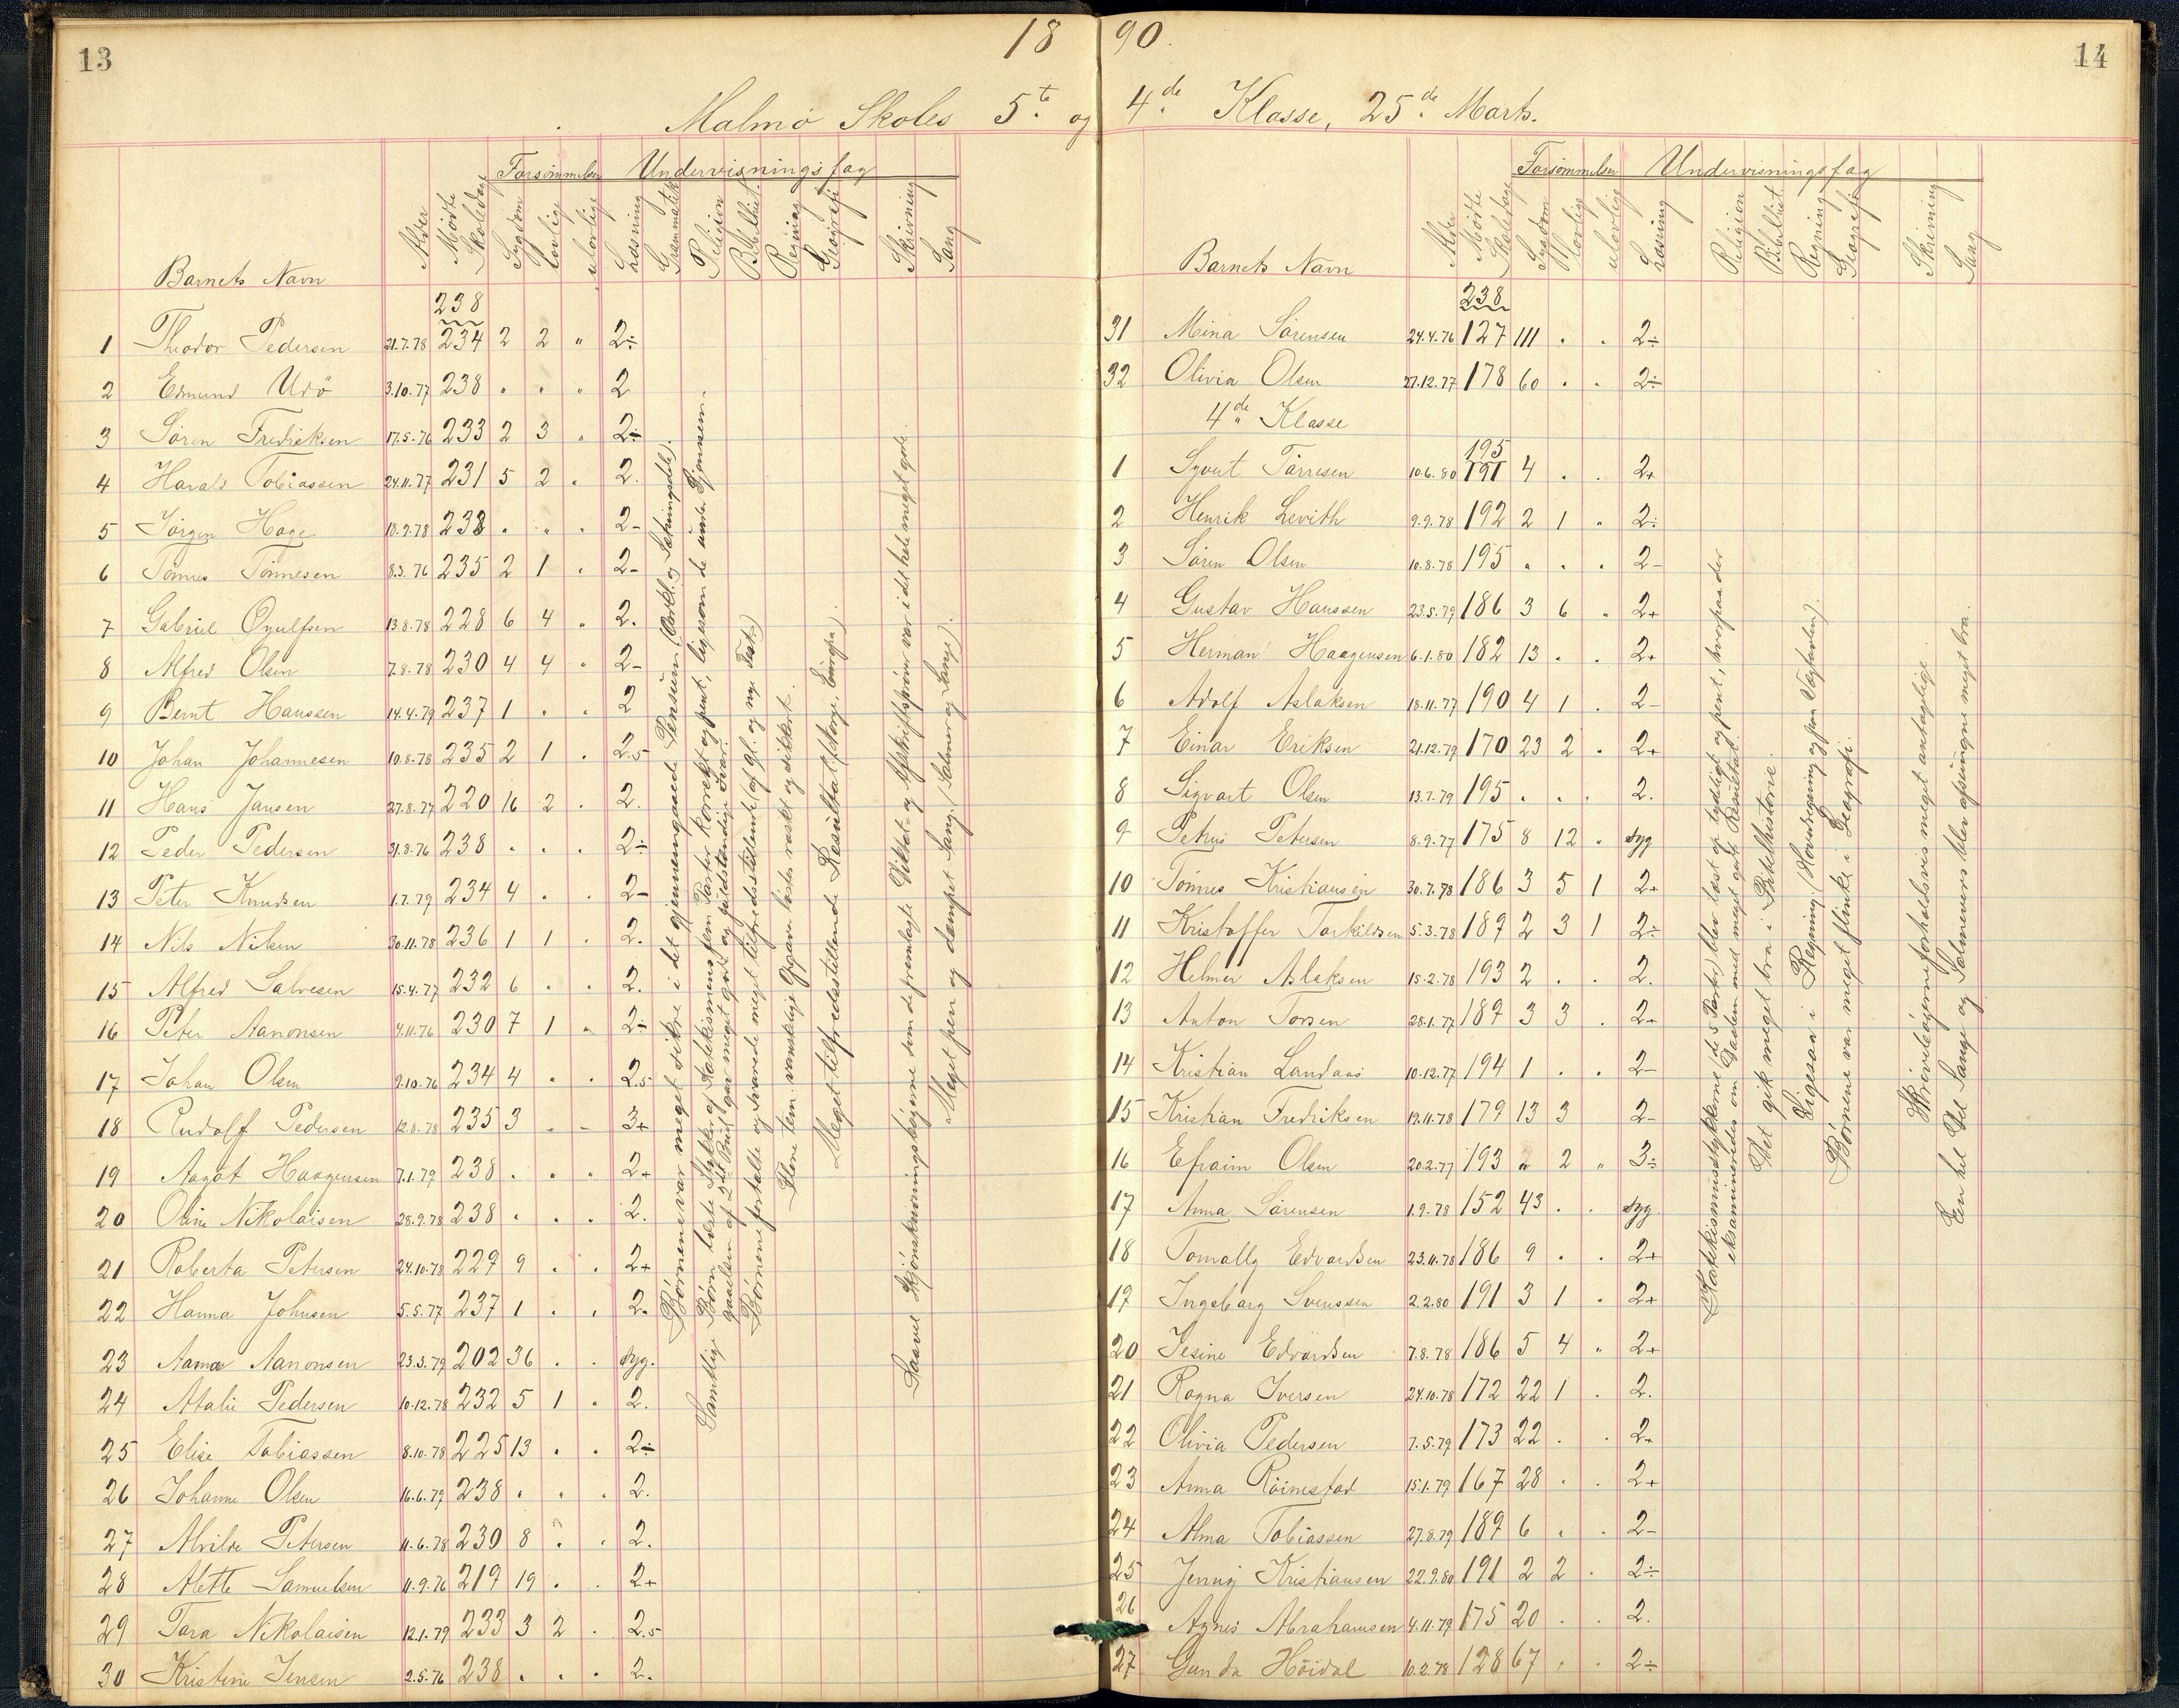 13
18 90.
14
Malmö Skoles 5te og 4de Klasse, 25de Marts.
Barnets Navn
Alder
Mødte Skoledage
Forsømmelser
Sygdom
lovlige
ulovlige
Undervisningsfag
Læsning
Grammatik
Religion
Bibelhist.
Regning
Geografi
Skrivning
Sang
238
1 Theodor Pedersen 21.7.78 234 2 2 " 2÷
2 Edmund Udö 3.10.77 238 . . . 2
3 Sören Fredriksen 17.5.76 233 2 3 . 2÷
4 Harald Tobiassen 24.11.77 231 5 2 . 2.
5 Jörgen Hage 18.9.78 238 . . . 2-
6 Tönnes Tönnesen 8.3.76 235 2 1 . 2-
7 Gabriel Oyulfsen 13.8.78 228 6 4 " 2.
8 Alfred Olsen 7.8.78 230 4 4 . 2-
9 Bernt Hanssen 14.4.79 237 1 . . 2
10 Johan Johannesen 10.8.78 235 2 1 . 2.5
11 Hans Jansen 27.8.77 220 16 2 . 2.
12 Peder Pedersen 31.8.76 238 . . . 2÷
13 Peter Knudsen 1.7.79 234 4 . . 2-
14 Nils Nilsen 30.11.78 236 1 1 . 2.
15 Alfred Salvesen 15.4.77 232 6 . . 2.
16 Peter Aanonsen 4.11.76 230 7 1 . 2÷
17 Johan Olsen 9.10.76 234 4 . . 2.5
18 Rudolf Pedersen 12.8.78 235 3 . - 3+
19 Aagot Haagensen 7.1.79 238 . . . 2+
20 Oline Nikolaisen 28.9.78 238 . . . 2.
21 Roberta Petersen 24.10.78 229 9 . . 2+
22 Hanna Johnsen 5.5.77 237 1 . . 2.
23 Anna Aanonsen 23.3.79 202 36 . . syg.
24 Atalie Pedersen 10.12.78 232 5 1 . 2.
25 Elise Tobiassen 8.10.78 225 13 . . 2÷
26 Johanne Olsen 16.6.79 238 . . . 2.
27 Alvilde Petersen 11.6.78 230 8 . . 2.
28 Alette Samuelsen 11.9.76 219 19 . . 2+
29 Tora Nikolaisen 12.1.79 233 3 2 . 2.5
30 Kristine Jensen 2.5.76 238 . . . 2.
Börnene var meget sikre i det gjennemgaaede Pensum (Ordkl. og Sætningsdele).
Samtlige Börn læste Stykker af Katekismens fem Parter korrekt og pent, ligesom de under Gjennem-
gaaelsen af 2det Bud gav meget gode og fuldstændige Svar.
Börnene fortalte og svarede meget tilfredsstillende (af gl. og nye Test.)
Flere tem. vanskelige Opgaver löstes raskt og sikkert.
Meget tilfredsstillende Resultat. (Norge, Europa).
Saavel Skjönskrivningsbögerne som de fremlagte Diktat- og Afskriftspröver var i det hele meget gode.
Meget pen og dæmpet Sang. (Salmer og Sange).
Barnets Navn
Alder
Mødte Skoledage
Forsømmelser
Sygdom
lovlige
ulovlige
Undervisningsfag
Læsning
Religion
Bibelhist.
Regning
Geografi
Skrivning
Sang
238
31 Mina Sörensen 24.4.76 127 111 . . 2÷
32 Olivia Olsen 27.12.77 178 60 . . 2÷
4de Klasse
195
1 Syvert Tärresen 10.6.80 191 4 . . 2+
2 Henrik Levith 9.9.78 192 2 1 " 2÷
3 Sören Olsen 10.8.78 195 . . . 2-
4 Gustav Hanssen 23.5.79 186 3 6 " 2+
5 Herman Haagensen 6.1.80 182 13 . . 2+
6 Adolf Aslaksen 18.11.77 190 4 1 . 2-
7 Einar Eriksen 21.12.79 170 23 2 . 2+
8 Sigvart Olsen 13.7.79 195 . . . 2.
9 Petrus Petersen 8.9.77 175 8 12 . syg
10 Tönnes Kristiansen 30.7.78 186 3 5 1 2+
11 Kristoffer Torkildsen 5.3.78 189 2 3 1 2÷
12 Helmer Aslaksen 15.2.78 193 2 . . 2.
13 Anton Torsen 28.1.77 189 3 3 . 2+
14 Kristian Landaas 10.12.77 194 1 . . 2-
15 Kristian Fredriksen 19.11.78 179 13 3 2-
16 Efraim Olsen 20.2.77 193 " 2 " 3÷
17 Anna Sörensen 1.9.78 152 43 . . syg.
18 Tomally Edvardsen 23.11.78 186 9 . . 2+
19 Ingeborg Svenssen 2.2.80 191 3 1 . 2+
20 Jesine Edvardsen 7.8.78 186 5 4 " 2+
21 Ragna Iversen 24.10.78 172 22 1 . 2.
22 Olivia Pedersen 7.5.79 173 22 . . 2+
23 Anna Röinestad 15.1.79 167 28 . . 2+
24 Alma Tobiassen 27.8.79 189 6 . . 2-
25 Jenny Kristiansen 22.9.80 191 2 2 . 2÷
26 Agnes Abrahamsen 4.11.79 175 20 . . 2.
27 Gunda Höidal 10.2.78 128 67 . . 2÷
Katekismusstykkerne (de 5 Parter) blev læst op tydeligt og pent, hvorpaa der
eksamineredes om Daaben med meget godt Resultat.
Det gik meget bra i Bibelhistorie.
Ligesaa i Regning. (Hovedregning og paa Vægtavlen).
Börnene var meget flinke i Geografi.
Skrivebögerne forholdsvis meget antagelige.
En hel Del Sange og Salmevers blev afsungne meget bra.